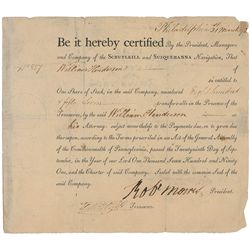 Philadelphia
Be it hereby certified By the President, Managers
and Company of the SCHUYLKILL and SUSQUEHANNA Navigation, That
No. 857 William Henderson
is entitled to
One Share of Stock, in the said Company, numbered Eight hundred
& fifty Seven transferrable in the Presence of the
Treasurer, by the said William Henderson or
his Attorney: subject nevertheless to the Payments due and to grow due
thereupon, according to the Form and Terms prescribed in an Act of the General Assembly
of the Commonwealth of Pennsylvania, passed the Twenty-ninth Day of
September, in the Year of our Lord One Thousand Seven Hundred and Ninety
One, and the Charter of said Company. Sealed with the common Seal of
the said Company.
Robt Morris President.
Treasurer.